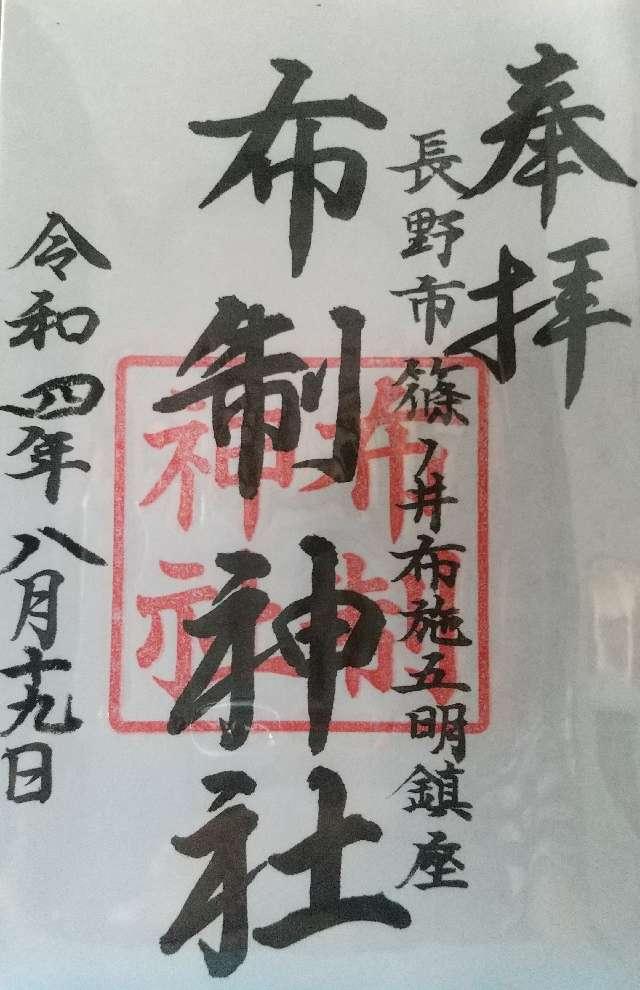 奉拝
長野市篠ノ井布施五明鎮座
布制神社
布制神社
令和四年八月十九日